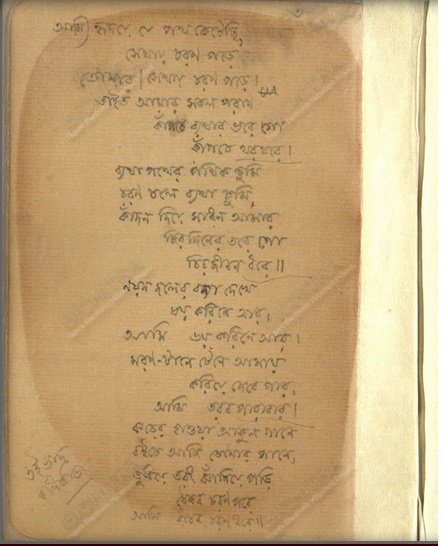 আমি হৃদয়ে যে পথ কেটেছি,
সেথায় চরণ পড়ে
তোমার সেথায় চরণ পড়ে।
তাইতো আমার সকল পরাণ
কাঁপচে ব্যথার ভরে গো
কাঁপচে থরথরে।
ব্যথা পথের পথিক তুমি
চরণ চলে ব্যথা চুমি,
কাঁদন দিয়ে সাধন আমার
চিরদিনের তরে গো
চিরজীবন ধরে॥
নয়ন জলের বন্যা দেখে
ভয় করিনে আর।
আমি ভয় করিনে আর।
মরণ-টানে টেনে আমায়
করিয়ে দেবে পার,
আমি তরব পারাবার।
ঝড়ের হাওয়া আকুল গানে
বইচে আজি তোমার পানে,
ডুবিয়ে তরী ঝাঁপিয়ে পড়ি
ঠেকব চরণ পরে
আমি বাঁচব চরণ ধরে॥
কলিকাতা